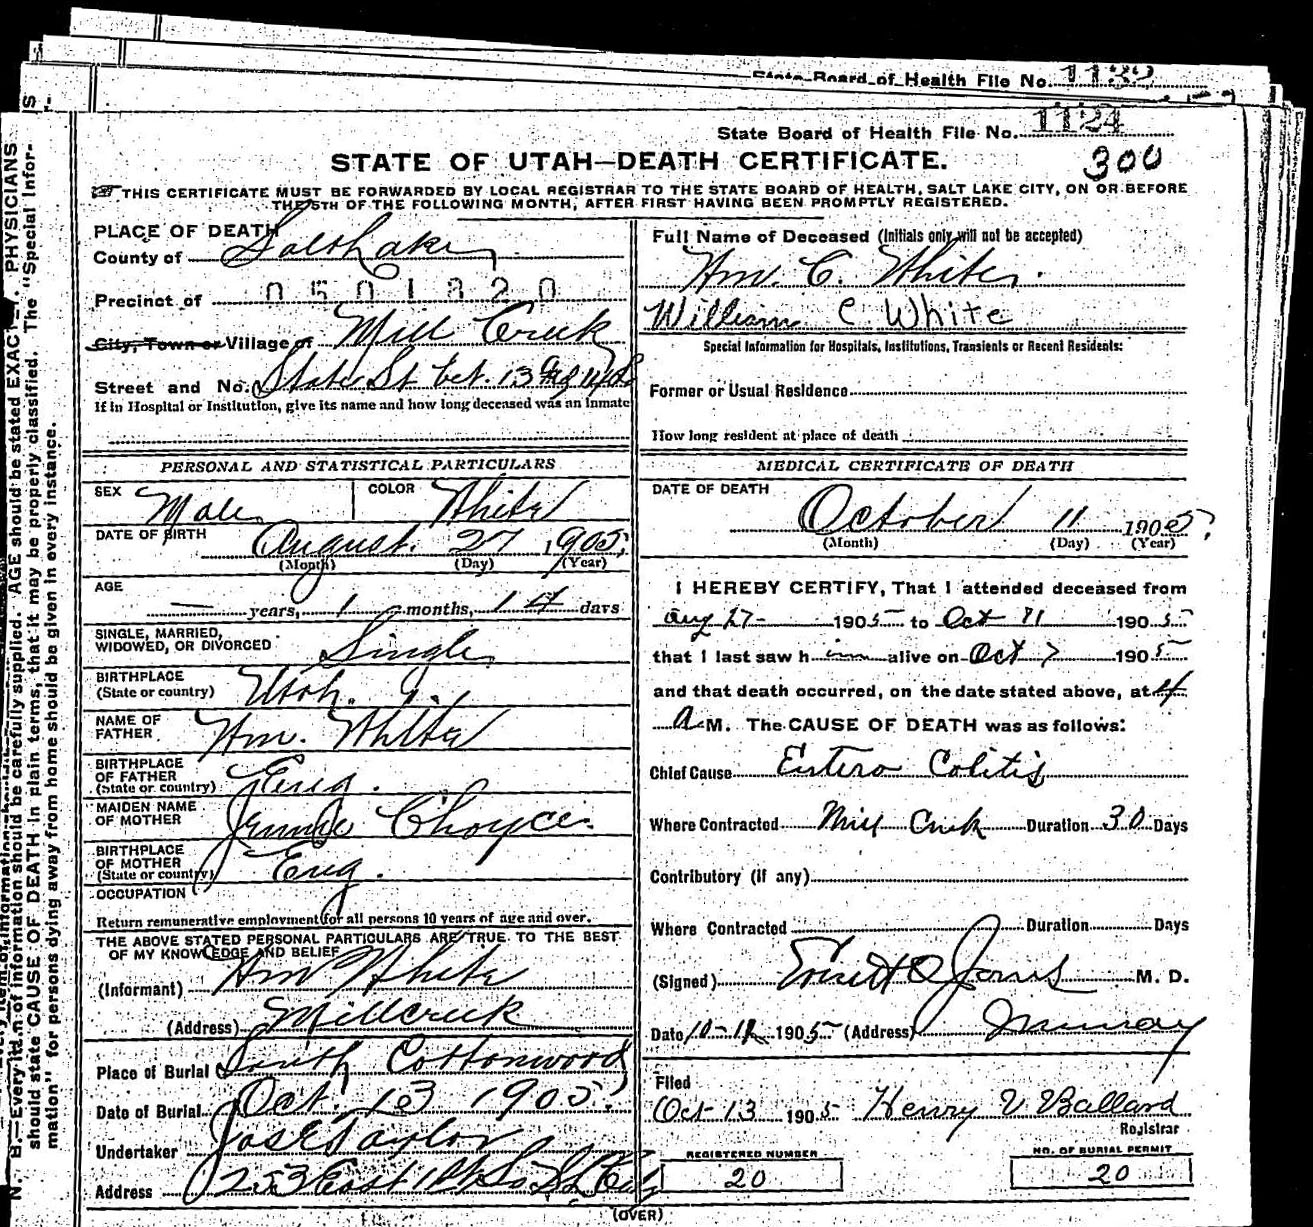 State Board of Health File No. 1132
State Board of Health File No. 1124
STATE OF UTAH—DEATH CERTIFICATE.
300
THIS CERTIFICATE MUST BE FORWARDED BY LOCAL REGISTRAR TO THE STATE BOARD OF HEALTH, SALT LAKE CITY, ON OR BEFORE
THE 5TH OF THE FOLLOWING MONTH, AFTER FIRST HAVING BEEN PROMPTLY REGISTERED.
PLACE OF DEATH
County of Salt Lake
Precinct of 0501820
City, Town or Village of Mill Creek
Street and No. State St bet. 13
If in Hospital or Institution, give its name and how long deceased was an Inmate
PERSONAL AND STATISTICAL PARTICULARS
SEX Male COLOR White
DATE OF BIRTH August 27 1905
(Month) (Day) (Year)
AGE
— years, 1 months, 14 days
SINGLE, MARRIED,
WIDOWED, OR DIVORCED Single
BIRTHPLACE
(State or country) Utah.
NAME OF
FATHER Wm. White
BIRTHPLACE
OF FATHER
(State or country) Eng.
MAIDEN NAME
OF MOTHER Jennie Choyce
BIRTHPLACE
OF MOTHER
(State or country) Eng.
OCCUPATION
Return remunerative employment for all persons 10 years of age and over.
THE ABOVE STATED PERSONAL PARTICULARS ARE TRUE TO THE BEST
OF MY KNOWLEDGE AND BELIEF
(Informant) Wm White
(Address) Millcreek
Place of Burial South Cottonwood
Date of Burial Oct. 13 1905.
Undertaker Jos E Taylor
Address 253 East 1st So SL City
Full Name of Deceased (Initials only will not be accepted)
Wm. C. White.
William C White
Special Information for Hospitals, Institutions, Transients or Recent Residents:
Former or Usual Residence
How long resident at place of death
MEDICAL CERTIFICATE OF DEATH
DATE OF DEATH
October 11 1905
(Month) (Day) (Year)
I HEREBY CERTIFY, That I attended deceased from
Aug 27 1905 to Oct 11 1905
that I last saw him alive on Oct 7 1905
and that death occurred, on the date stated above, at 4
A M. The CAUSE OF DEATH was as follows:
Chief Cause Entero Colitis
Where Contracted Mill Creek Duration 30 Days
Contributory (if any)
Where Contracted Duration Days
(Signed) Jones M. D.
Date 10-12 1905 (Address) Murray
Filed
Oct 13 1905 Henry V Ballard
Registrar
REGISTERED NUMBER
20
NO. OF BURIAL PERMIT
20
(OVER)
N. B.—Every item of information should be carefully supplied. AGE should be stated EXACTLY. PHYSICIANS
should state CAUSE OF DEATH in plain terms, that it may be properly classified. The "Special Infor-
mation" for persons dying away from home should be given in every instance.